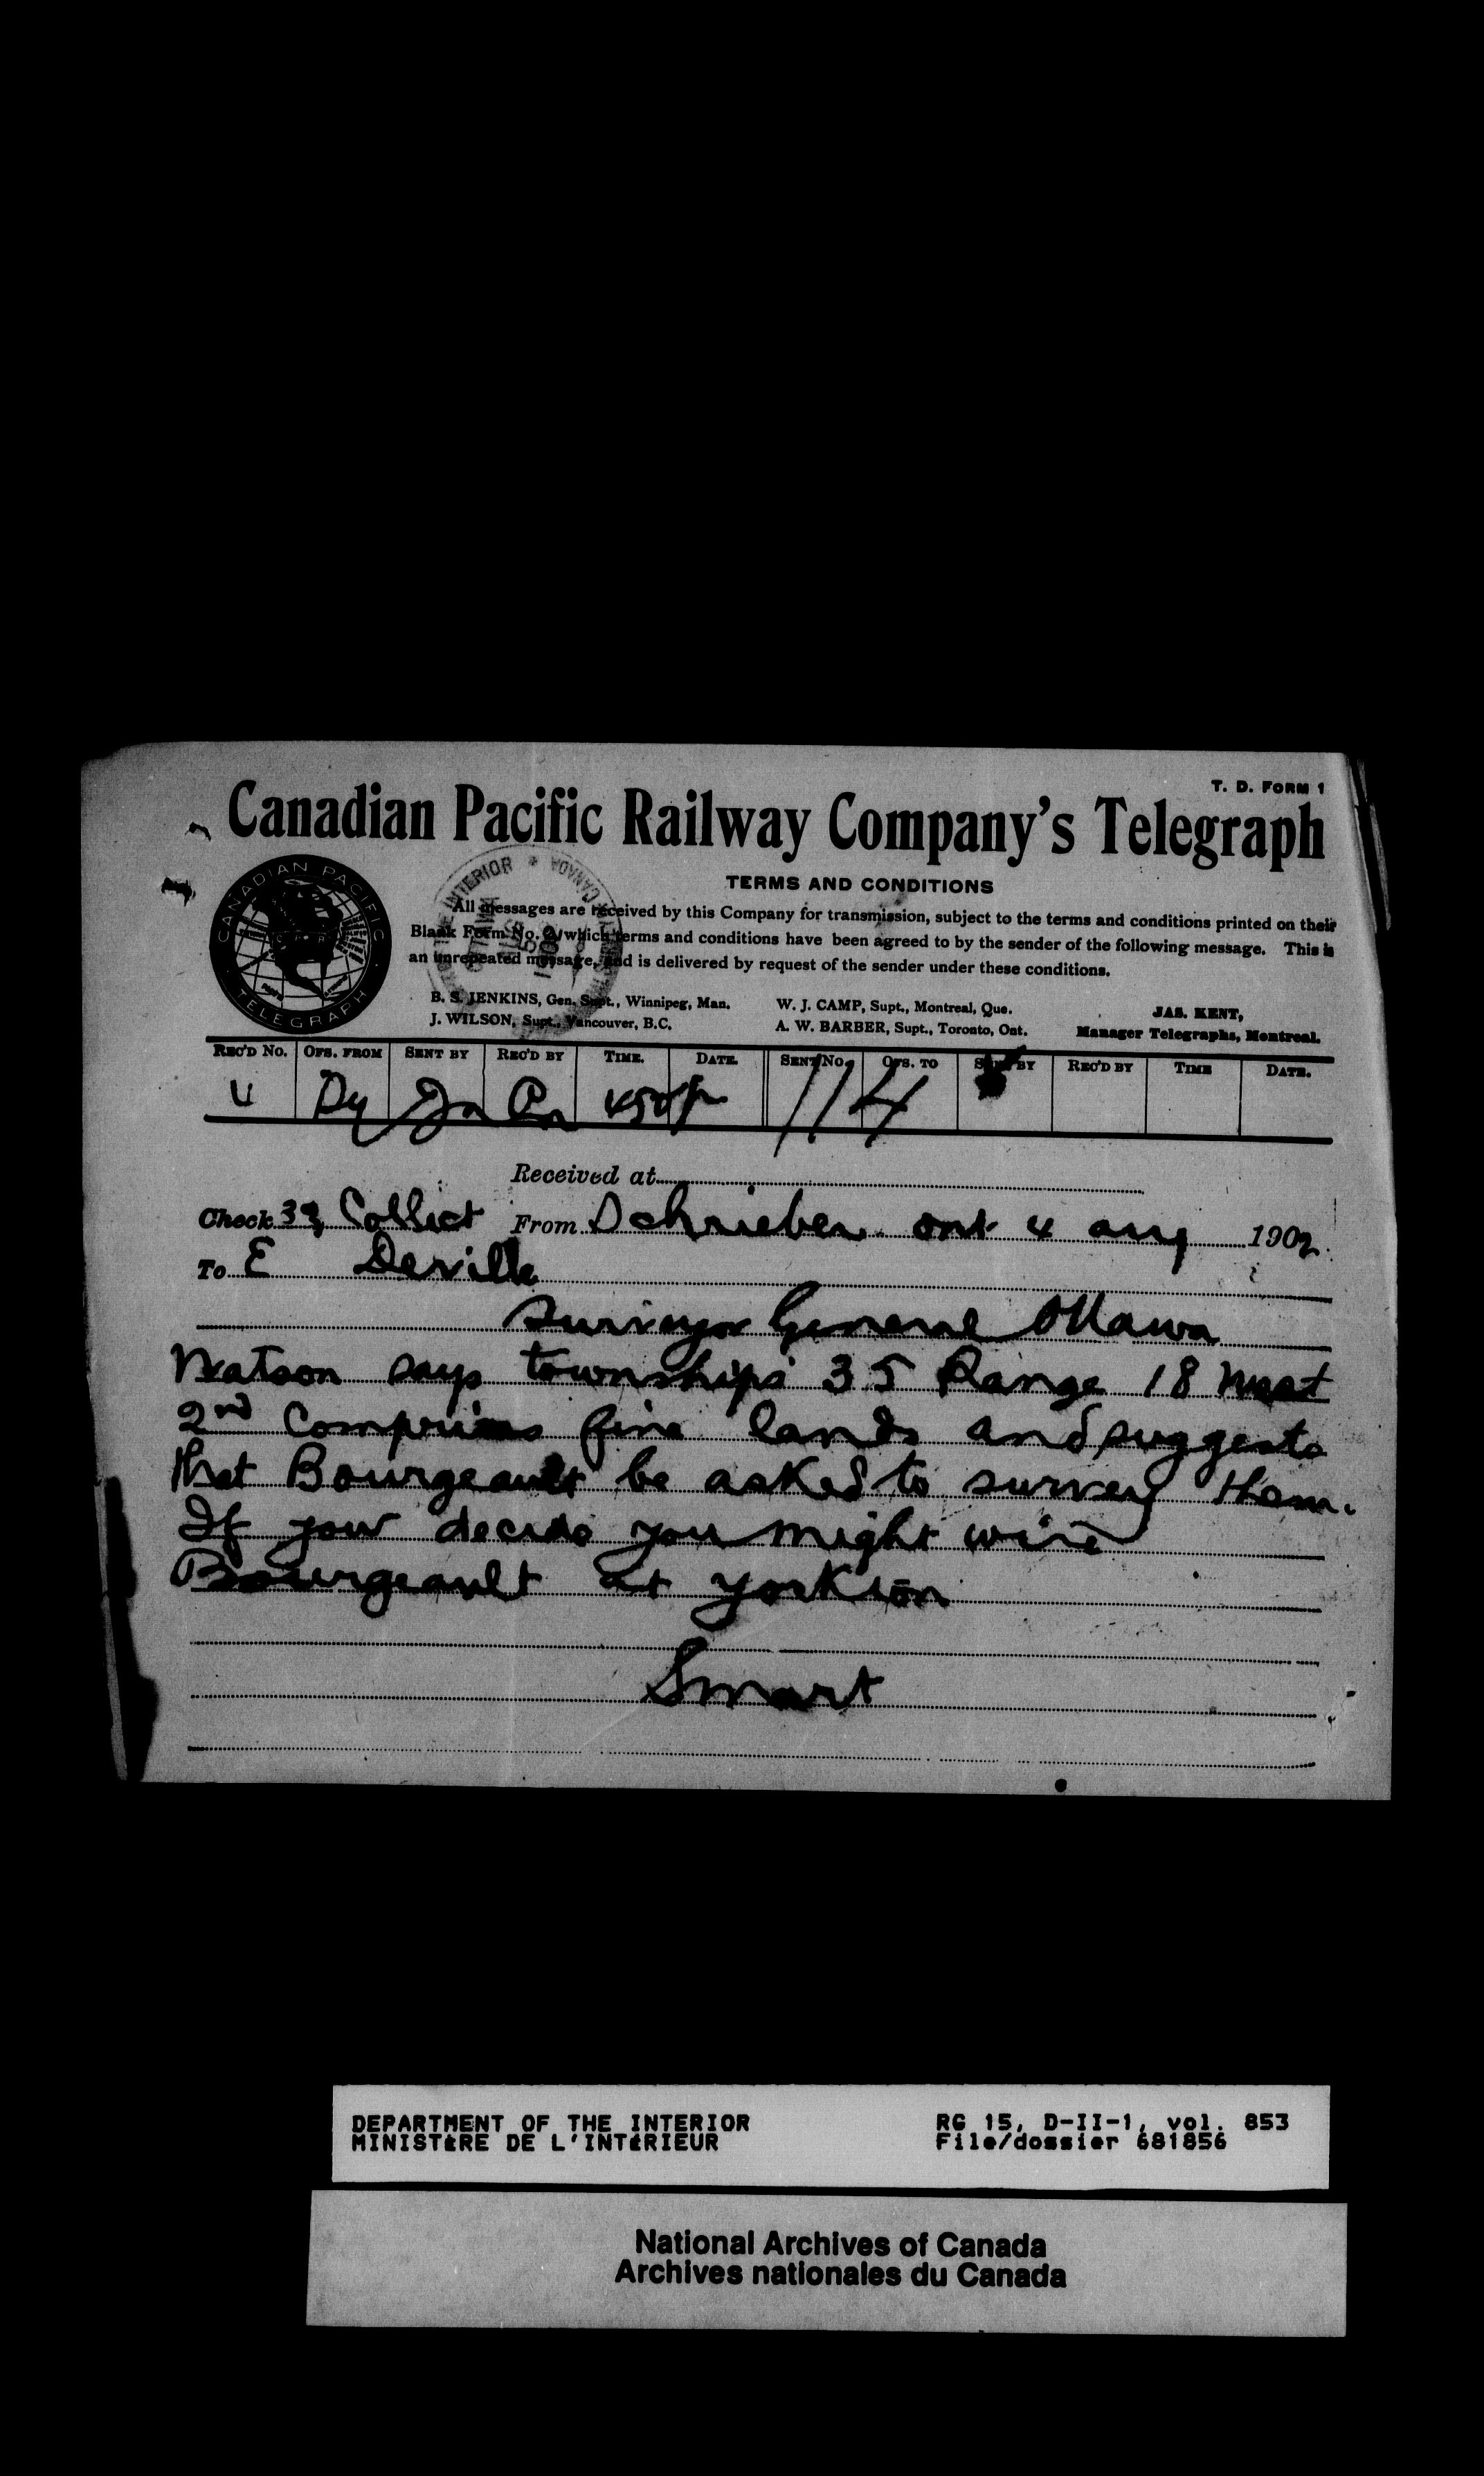 T. D. FORM 1
Canadian Pacific Railway Company's Telegraph
CANADIAN PACIFIC
TELEGRAPH
INTERIOR * CANADA
TERMS AND CONDITIONS
All messages are received by this Company for transmission, subject to the terms and conditions printed on their
Blank Form No. 2, which terms and conditions have been agreed to by the sender of the following message. This is
an unrepeated message, and is delivered by request of the sender under these conditions.
B. S. JENKINS, Gen. Supt., Winnipeg, Man. W. J. CAMP, Supt., Montreal, Que. JAS. KENT,
J. WILSON, Supt., Vancouver, B.C. A. W. BARBER, Supt., Toronto, Ont. Manager Telegraphs, Montreal.
REC'D No. OFS. FROM SENT BY REC'D BY TIME. DATE. SENT No. OFS. TO SENT BY REC'D BY TIME DATE.
4 114
Received at
Check Collect From Schrieber ont 4 aug 1902
To E Deville
Surveyor General Ottawa
Watson says townships 35 Range 18 West
2nd Comprises fine lands and suggests
that Bourgeault be asked to survey them.
If you decide you might wire
Bourgeault at Yorkton
Smart
DEPARTMENT OF THE INTERIOR RG 15, D-II-1, vol. 853
MINISTÈRE DE L'INTÉRIEUR File/dossier 681856
National Archives of Canada
Archives nationales du Canada